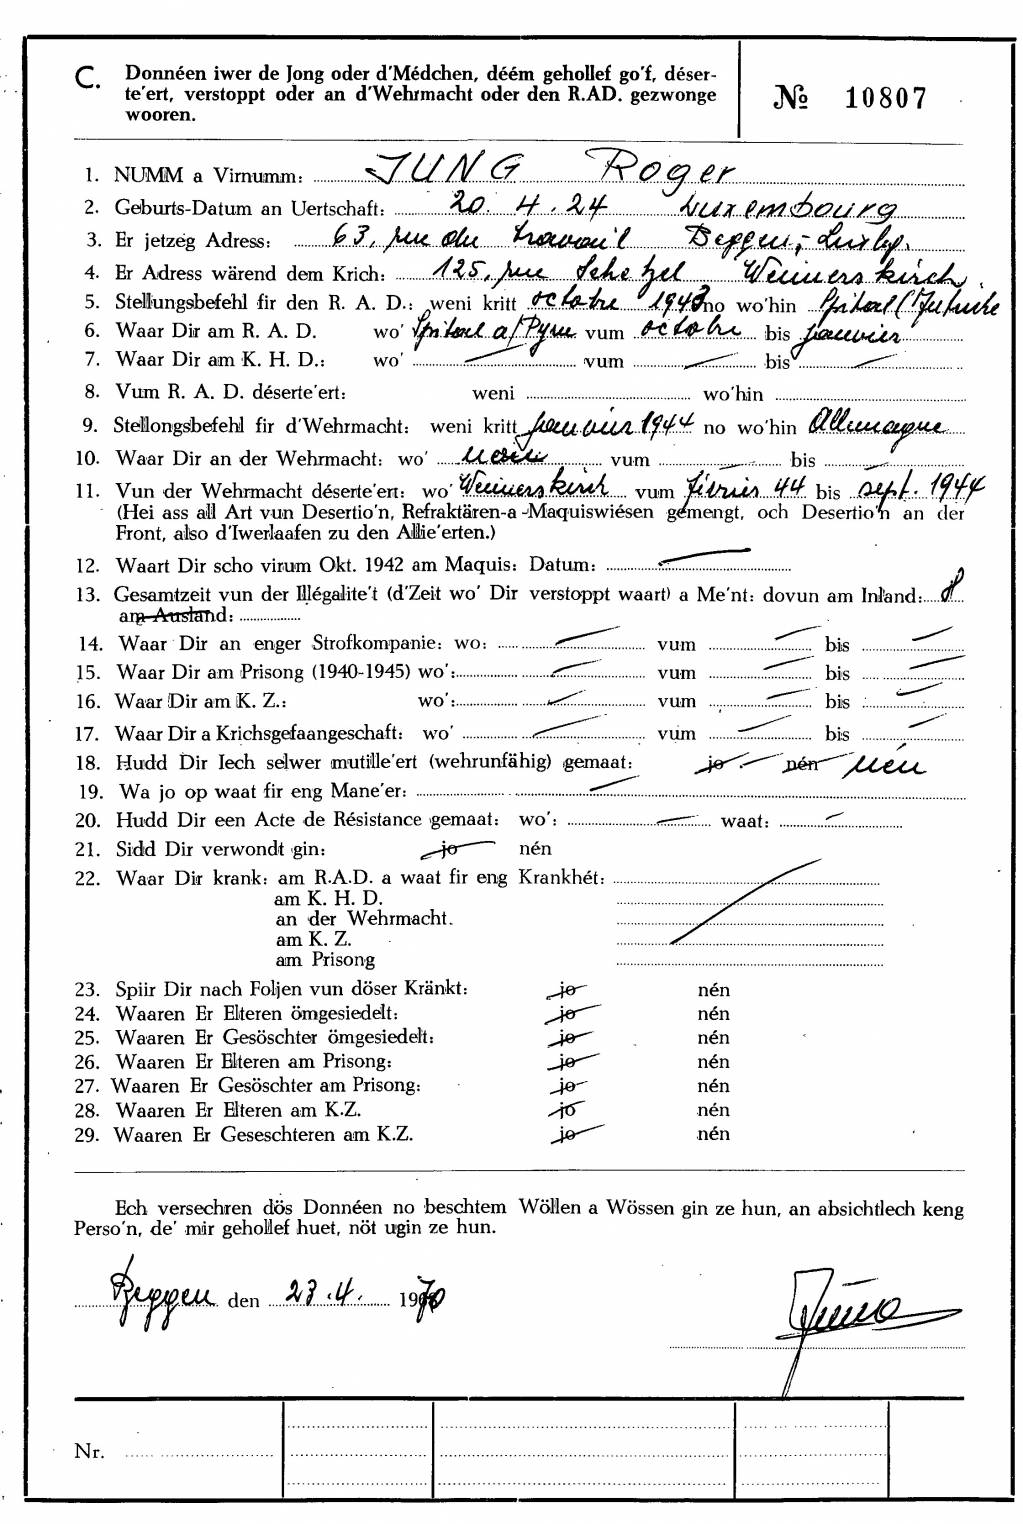 C. Donnéen iwer de Jong oder d'Médchen, déém gehollef go'f, déser-
te'ert, verstoppt oder an d'Wehrmacht oder den R.AD. gezwonge
wooren.
№ 10807
1. NUMM a Virnumm: JUNG Roger
2. Geburts-Datum an Uertschaft: 20. 4. 24 Luxembourg
3. Er jetzeg Adress: 63, rue du travail Beggen,-Luxbg.
4. Er Adress wärend dem Krich: 125, rue Schetzel Weimerskirch.
5. Stellungsbefehl fir den R. A. D.: weni kritt octobre 1943 no wo'hin
6. Waar Dir am R. A. D. wo' vum octobre bis janvier
7. Waar Dir am K. H. D.: wo' vum bis
8. Vum R. A. D. déserte'ert: weni wo'hin
9. Stellongsbefehl fir d'Wehrmacht: weni kritt janvier 1944 no wo'hin Allemagne
10. Waar Dir an der Wehrmacht: wo' vum bis
11. Vun der Wehrmacht déserte'ert: wo' Weimerskirch vum février 44 bis sept. 1944
(Hei ass all Art vun Desertio'n, Refraktären-a -Maquiswiésen gemengt, och Desertio'n an der
Front, also d'Iwerlaafen zu den Allie'erten.)
12. Waart Dir scho virum Okt. 1942 am Maquis: Datum:
13. Gesamtzeit vun der Illégalite't (d'Zeit wo' Dir verstoppt waart) a Me'nt: dovun am Inland: 8
am Ausland:
14. Waar Dir an enger Strofkompanie: wo: vum bis
15. Waar Dir am Prisong (1940-1945) wo': vum bis
16. Waar Dir am K. Z.: wo': vum bis
17. Waar Dir a Krichsgefaangeschaft: wo' vum bis
18. Hudd Dir Iech selwer mutille'ert (wehrunfähig) gemaat: jo nén nén
19. Wa jo op waat fir eng Mane'er:
20. Hudd Dir een Acte de Résistance gemaat: wo': waat:
21. Sidd Dir verwondt gin: jo nén
22. Waar Dir krank: am R.A.D. a waat fir eng Krankhét:
am K. H. D.
an der Wehrmacht.
am K. Z.
am Prisong
23. Spiir Dir nach Foljen vun döser Kränkt: jo nén
24. Waaren Er Elteren ömgesiedelt: jo nén
25. Waaren Er Gesöschter ömgesiedelt: jo nén
26. Waaren Er Elteren am Prisong: jo nén
27. Waaren Er Gesöschter am Prisong: jo nén
28. Waaren Er Elteren am K.Z. jo nén
29. Waaren Er Geseschteren am K.Z. jo nén
Ech versechren dös Donnéen no beschtem Wöllen a Wössen gin ze hun, an absichtlech keng
Perso'n, de' mir gehollef huet, nöt ugin ze hun.
Beggen den 23.4. 1970
Jung
Nr.